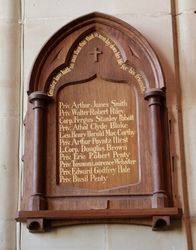 Greater love hath no man than this that a man lay down his life for his friends.
Priv. Arthur James Smith
Priv. Walter Robert Riley
Corp. Fergus Stanley Abbott
Priv. Athol Clyde Blake
Lieu. Henry Harold Mac Carthy
Priv. Arthur Poyntz Hirst
L. Corp. Douglas Brown
Priv. Eric Robert Penty
Priv. Laurence Webster
Priv. Edward Godfrey Dale
Priv. Basil Penty